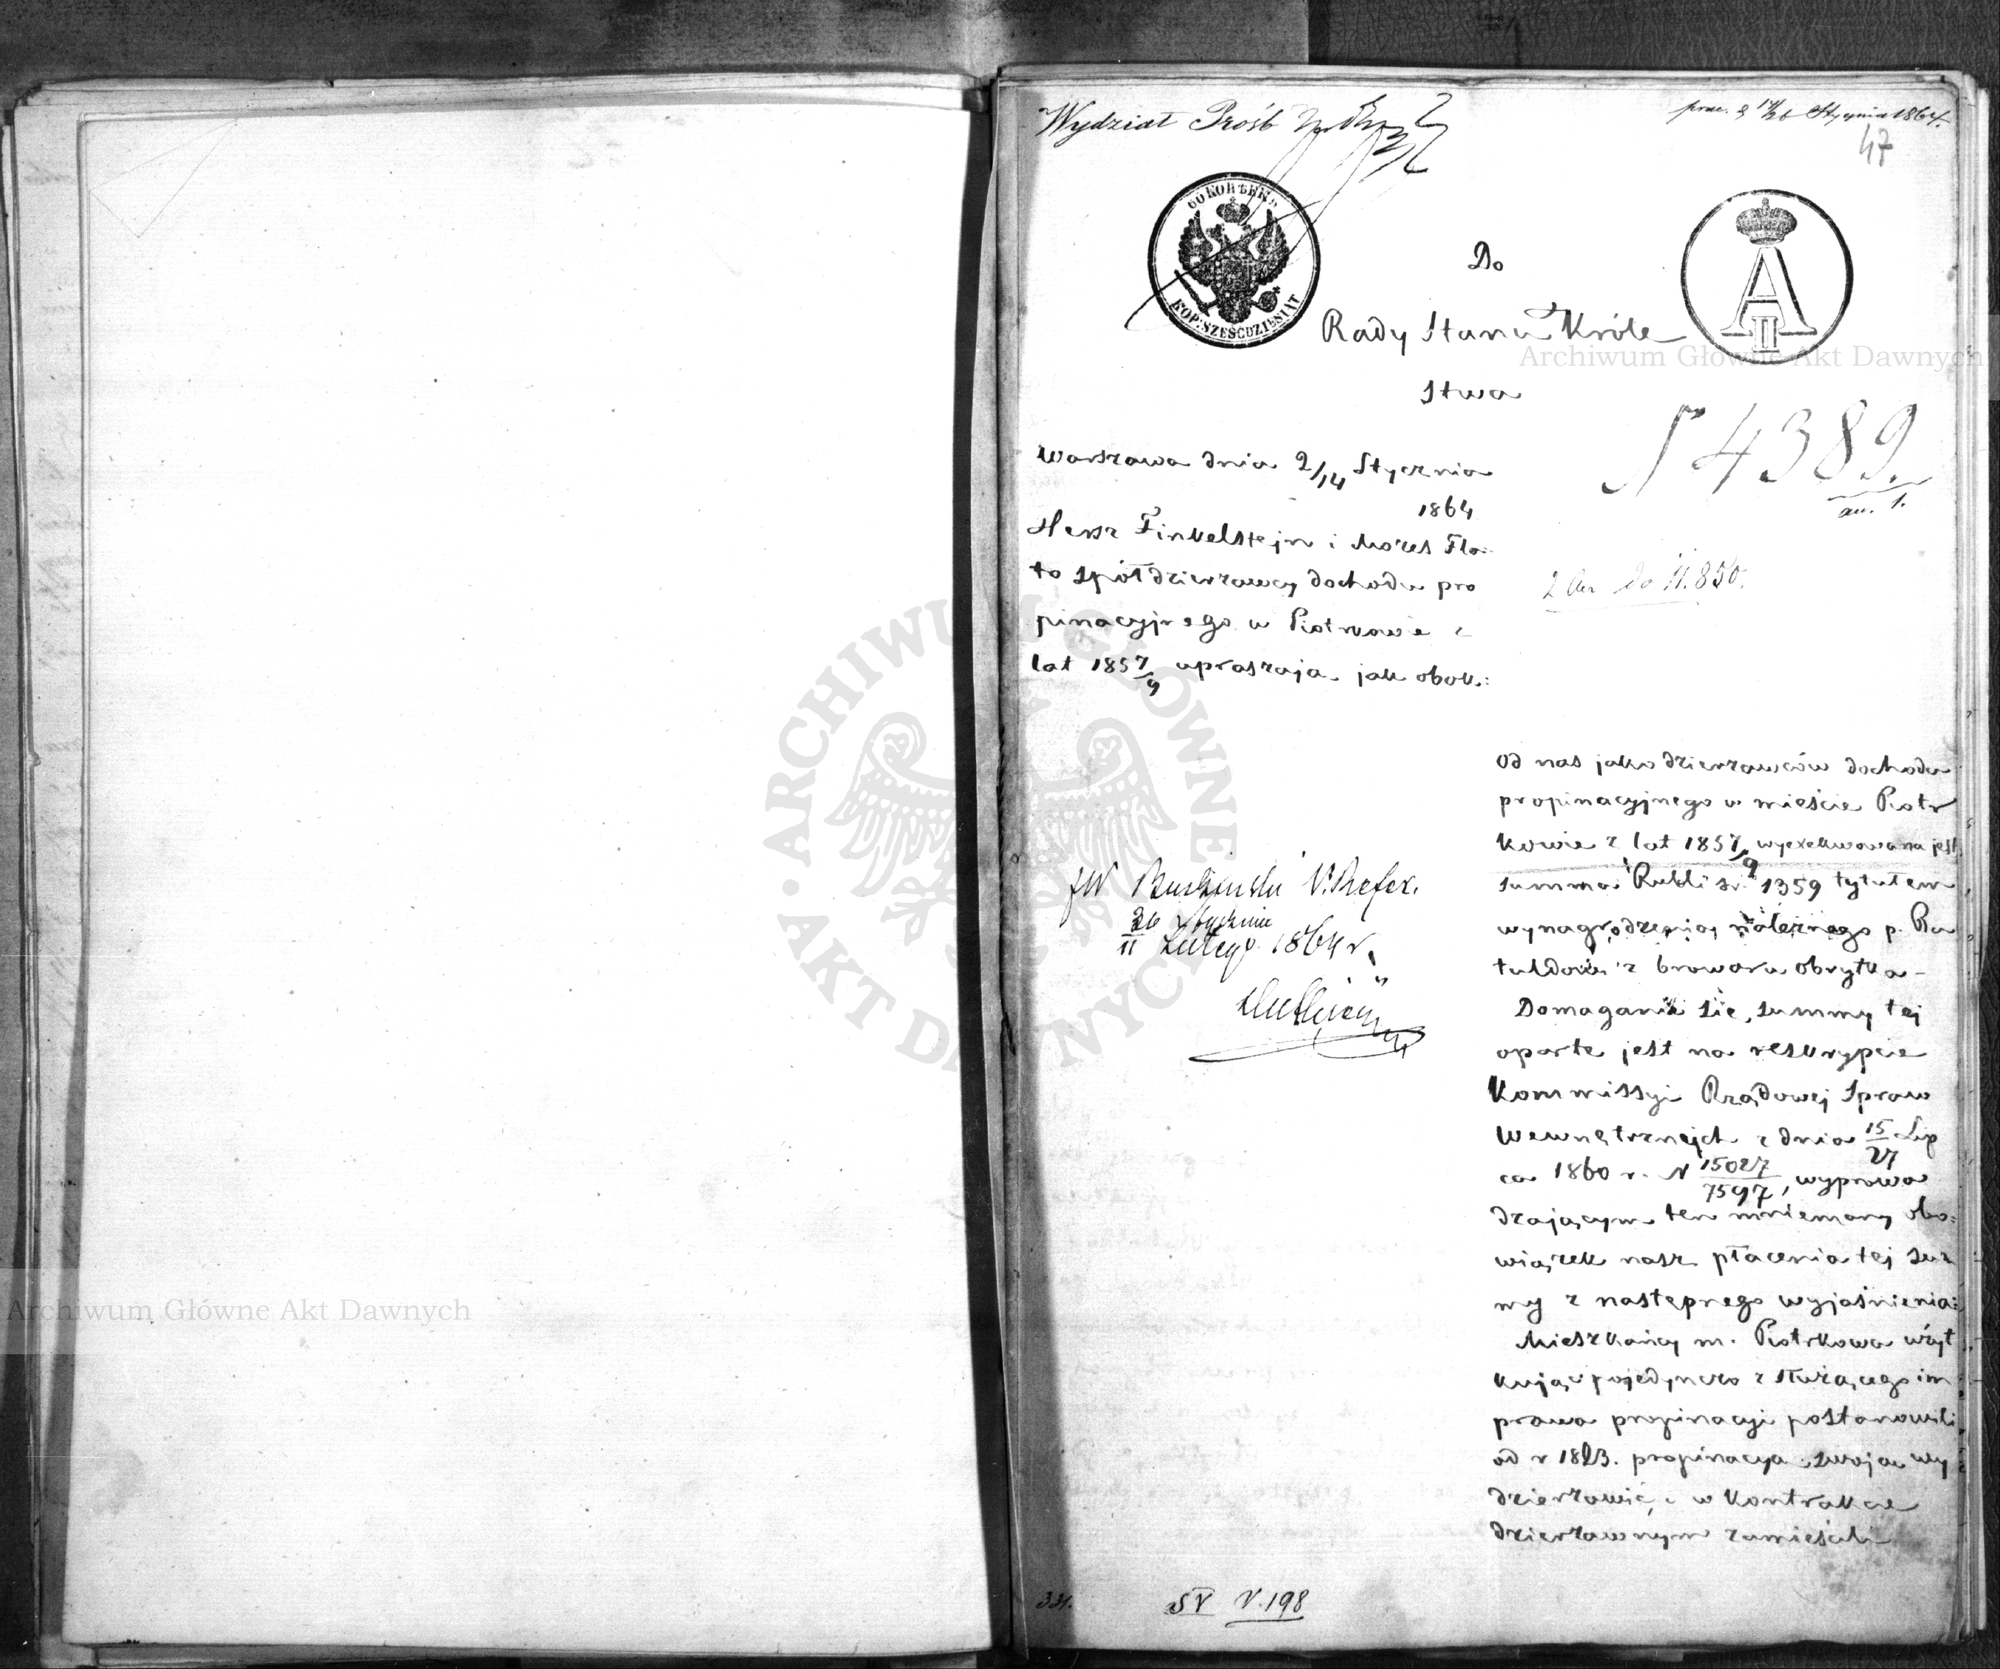 Wydział Próśb
prae. d 14/26 Stycznia 1864.
47
60 КОПѢЕКЪ
KOP: SZEŚĆDZIESIĄT
A II
Do
Rady Stanu Króle
stwa
Archiwum Główne Akt Dawnych
N 4389.
an. 1.
Warszawa dnia 2/14 Stycznia
1864
Hersz Finkelstejn i Mozes Fla-
to spółdzierzawcy dochodu pro
pinacyjnego w Piotrkowie z
lat 1857/9 upraszają jak obok:
2 do 11.850.
od nas jako dzierzawców dochodu
propinacyjnego w mieście Piotr
kowie z lat 1857/9 wyexekwowana jest
summa Rubli sr. 1359 tytułem
wynagrodzenia, należnego p. Ra
z browaru obrytka-
Domaganie się, summy tej
oparte jest na reskrypcie
Kommissyi Rządowej Spraw
Wewnętrznych z dnia 15/27 Lip
ca 1860 r. N 15027/7597, wyprowa
dzającym ten mniemany obo-
wiązek nasz płacenia tej su-
my z następnego wyjaśnienia:
Mieszkańcy m. Piotrkowa użyt
kując pojedynczo z służącego im
prawa propinacyi postanowili
od r 1823. propinacyą swoją wy
dzierzawić, i w kontrakcie
dzierzawnym zamieścili
JW V. Refer.
26 Stycznia
11 Lutego 1864 r.
ARCHIWUM GŁÓWNE AKT DAWNYCH
Archiwum Główne Akt Dawnych
331.
SV V. 198